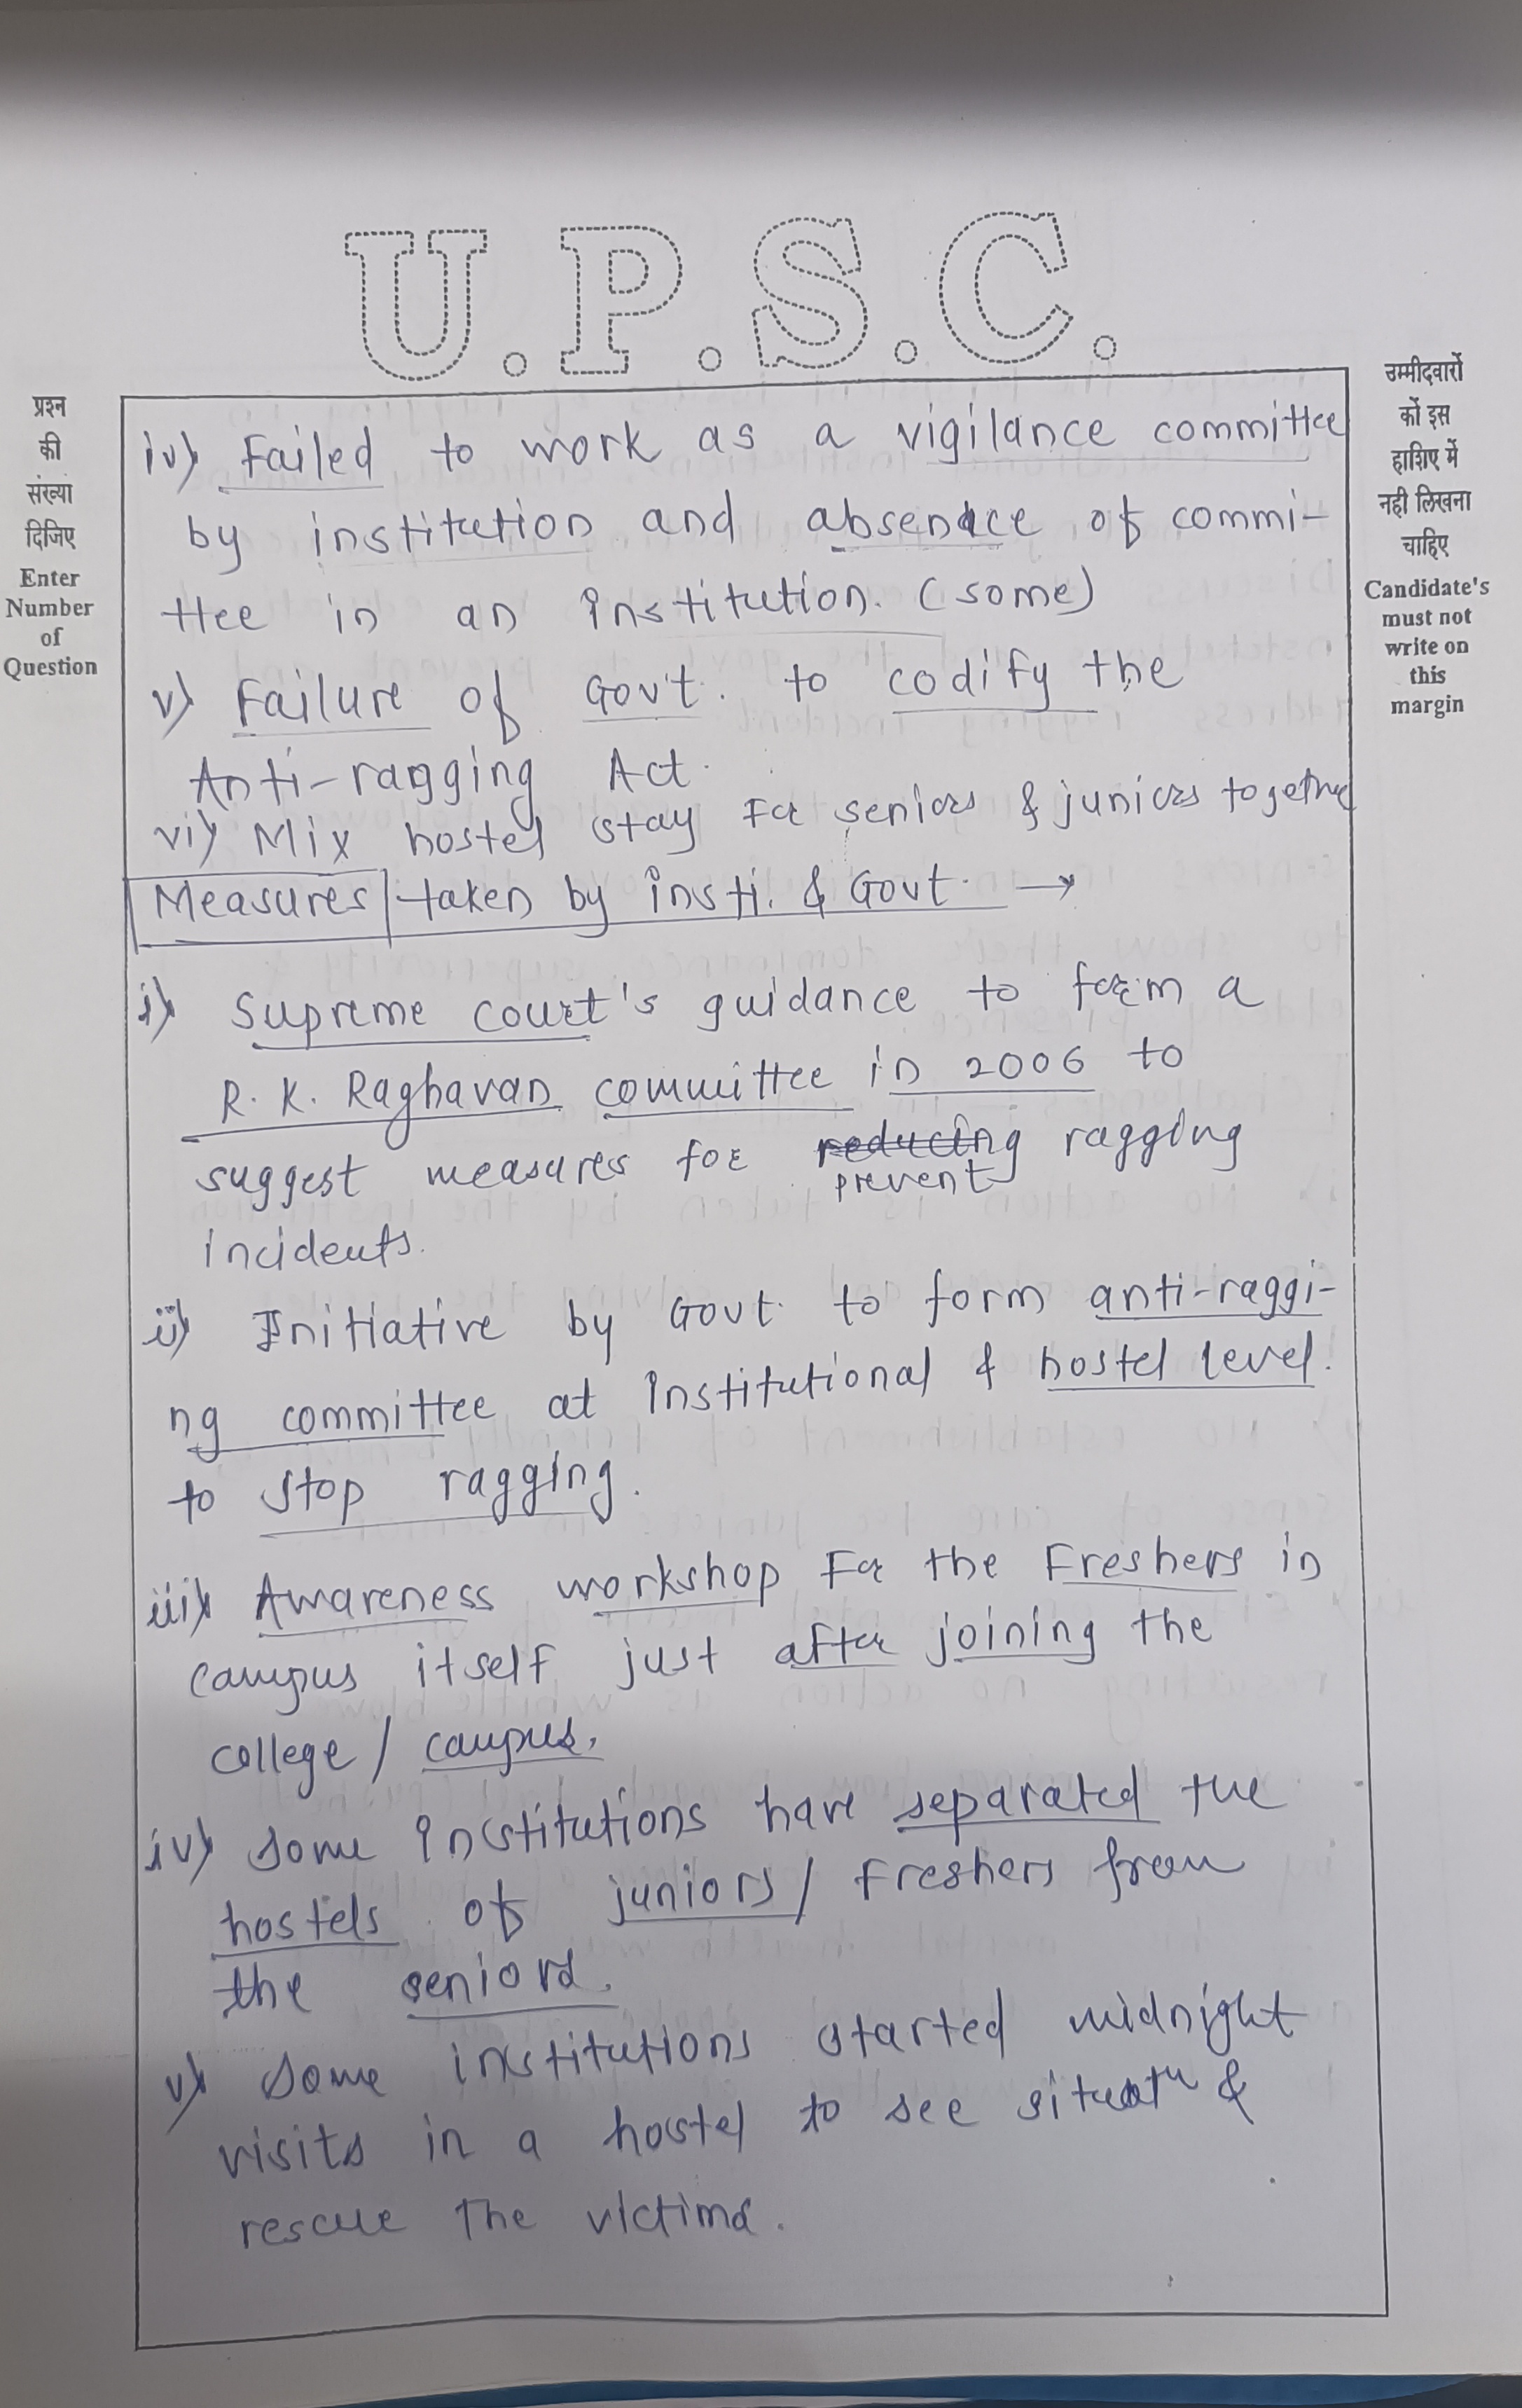 U.P.S.C.
प्रश्न
की
संख्या
दिजिए
Enter
Number
of
Question
उम्मीदवारों
कों इस
हाशिए में
नही लिखना
चाहिए
Candidate's
must not
write on
this
margin
iv) Failed to work as a vigilance committee
by institution and absence of commi-
ttee in an institution. (some)
v) Failure of Govt. to codify the
Anti-ragging Act.
vi) Mix hostel stay For seniors & juniors together
Measures taken by insti. & Govt. →
i) Supreme court's guidance to form a
R. K. Raghavan committee in 2006 to
suggest measures for reducing ragging
prevent
incidents.
ii) Initiative by Govt. to form anti-raggi-
ng committee at Institutional & hostel level.
to stop ragging.
iii) Awareness workshop For the Freshers in
campus itself just after joining the
college / campus.
iv) Some institutions have separated the
hostels of juniors / Freshers from
the seniors.
v) Some institutions started midnight
visits in a hostel to see situatn &
rescue the victims.